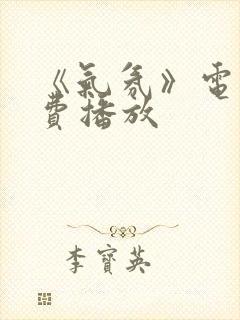 《氣氛》電
費播放
李寶英